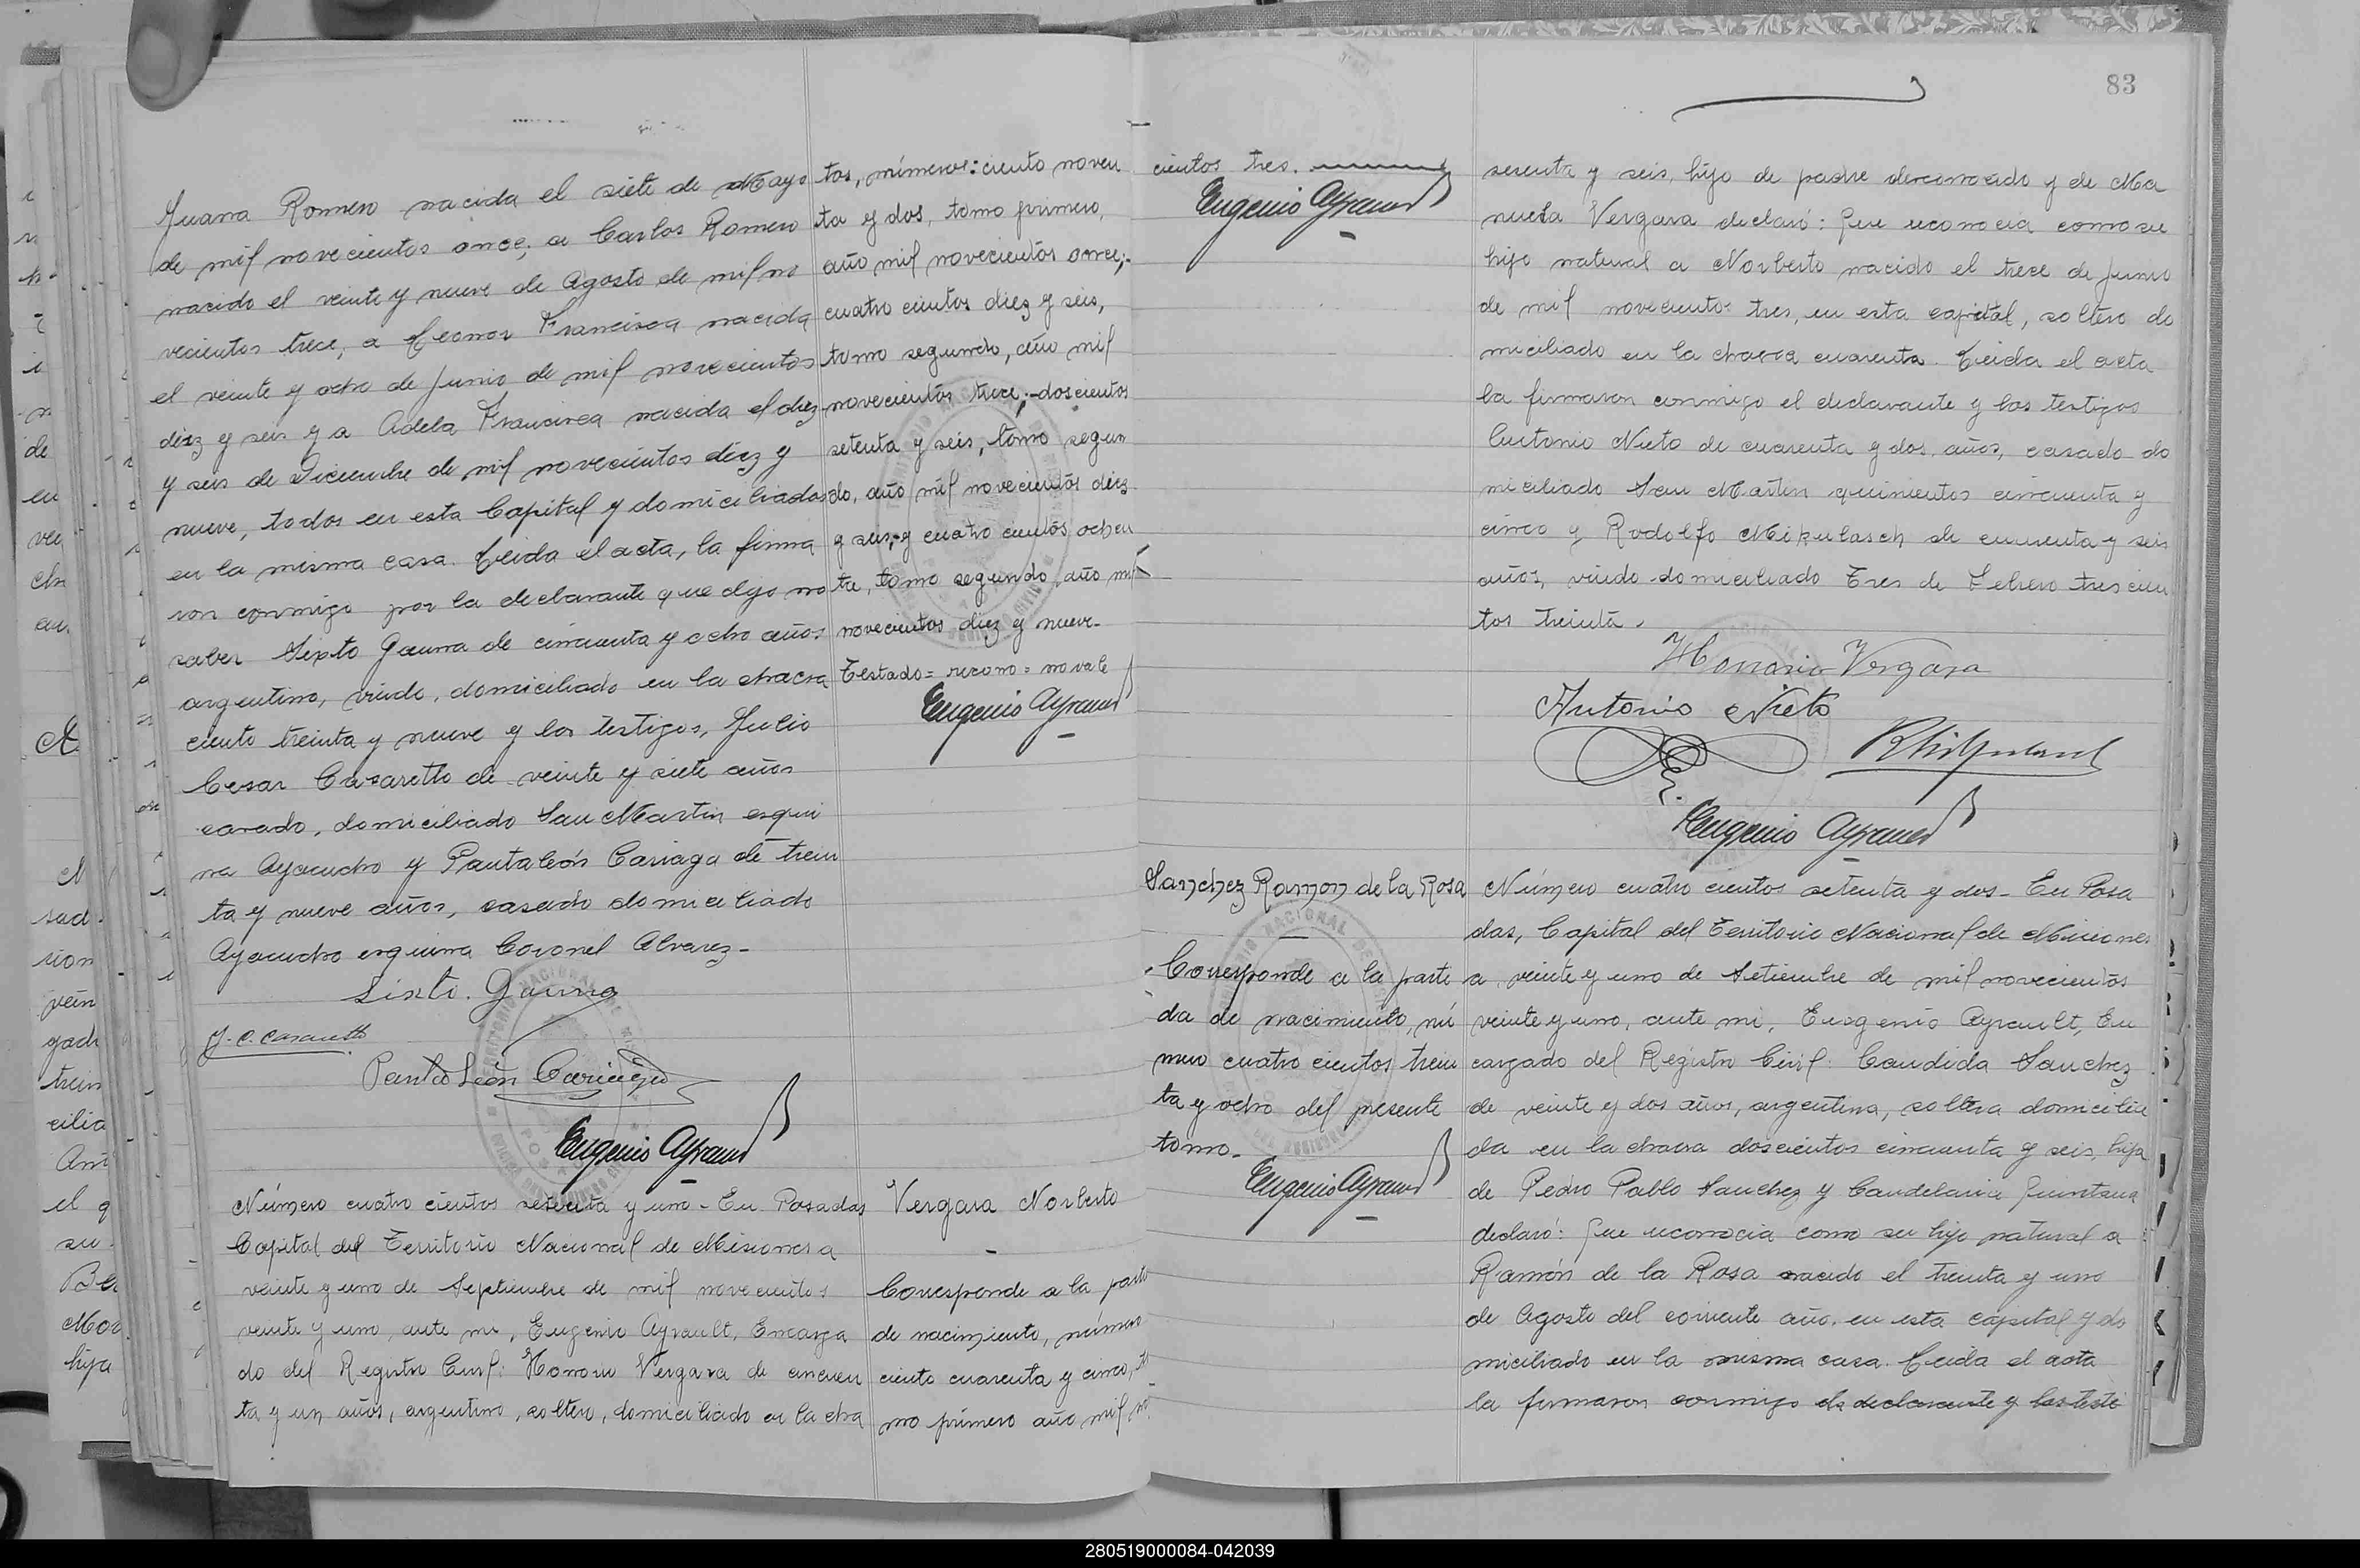 Juana Romero nacida el siete de Mayo
de mil novecientos once, a Carlos Romero
nacido el veinte y nueve de Agosto de mil no
vecientos trece, a Leonor Francisca nacida
el veinte y ocho de Junio de mil novecientos
diez y seis y a Adela Francisca nacida el diez
y seis de Diciembre de mil novecientos diez y
nueve, todos en esta Capital y domiciliados
en la misma casa. Leida el acta, la firma
ron conmigo por la declarante que dijo no
saber Sixto Gauna de cincuenta y ocho años
argentino, viudo, domiciliado en la chacra
ciento treinta y nueve y los testigos, Julio
Cesar Casaretto de veinte y siete años
casado, domiciliado San Martin esqui
na Ayacucho y Pantaleón Cariaga de trein
ta y nueve años, casado domiciliado
Ayacucho esquina Coronel Alvarez-
Sixto. Gauna
J. C. Casaretto
Pantaleón Cariaga
Eugenio Ayrault
tos, números: ciento noven
ta y dos, tomo primero,
año mil novecientos once;-
cuatro cientos diez y seis,
tomo segundo, año mil
novecientos trece;-doscientos
setenta y seis, tomo segun
do, año mil novecientos diez
y seis,-y cuatro cientos ochen
ta, tomo segundo, año mil
novecientos diez y nueve-
Testado= recono= no vale
Eugenio Ayrault
Número cuatro cientos setenta y uno- En Posadas
Capital del Territorio Nacional de Misiones a
veinte y uno de Septiembre de mil novecientos
veinte y uno, ante mi, Eugenio Ayrault, Encarga
do del Registro Civil: Honorio Vergara de cincuen
ta y un años, argentino, soltero, domiciliado en la cha
Vergara Norberto
Corresponde a la parti
de nacimiento, número
ciento cuarenta y cinco, to
mo primero año mil no
83
cientos tres.
Eugenio Ayrault
sesenta y seis, hijo de padre desconocido y de Ma
nuela Vergara declaró: Que reconocia como su
hijo natural a Norberto nacido el trece de Junio
de mil novecientos tres, en esta capital, soltero do
miciliado en la chacra cuarenta. Leida el acta
la firmaron conmigo el declarante y los testigos
Antonio Nieto de cuarenta y dos, años, casado do
miciliado San Martin quinientos cincuenta y
cinco y Rodolfo Mikulasch de cuarenta y seis
años, viudo domiciliado Tres de Febrero trescien
tos treinta.
Honorio Vergara
Antonio Nieto
Eugenio Ayrault
Sanchez Ramon de la Rosa
Corresponde a la parti
da de nacimiento, nú
mero cuatro cientos trein
ta y ocho del presente
tomo.
Eugenio Ayrault
Número cuatro cientos setenta y dos- En Posa
das, Capital del Territorio Nacional de Misiones
a, veinte y uno de Setiembre de mil novecientos
veinte y uno, ante mi, Eugenio Ayrault, En
cargado del Registro Civil: Candida Sanchez
de veinte y dos años, argentina, soltera domicilia
da en la chacra doscientos cincuenta y seis, hija
de Pedro Pablo Sanchez y Candelaria Quintana
declaró: Que reconocia como su hijo natural a
Ramón de la Rosa nacido el treinta y uno
de Agosto del corriente año, en esta capital y do
miciliado en la misma casa. Leida el acta
la firmaron conmigo la declarante y los testi
280519000084-042039